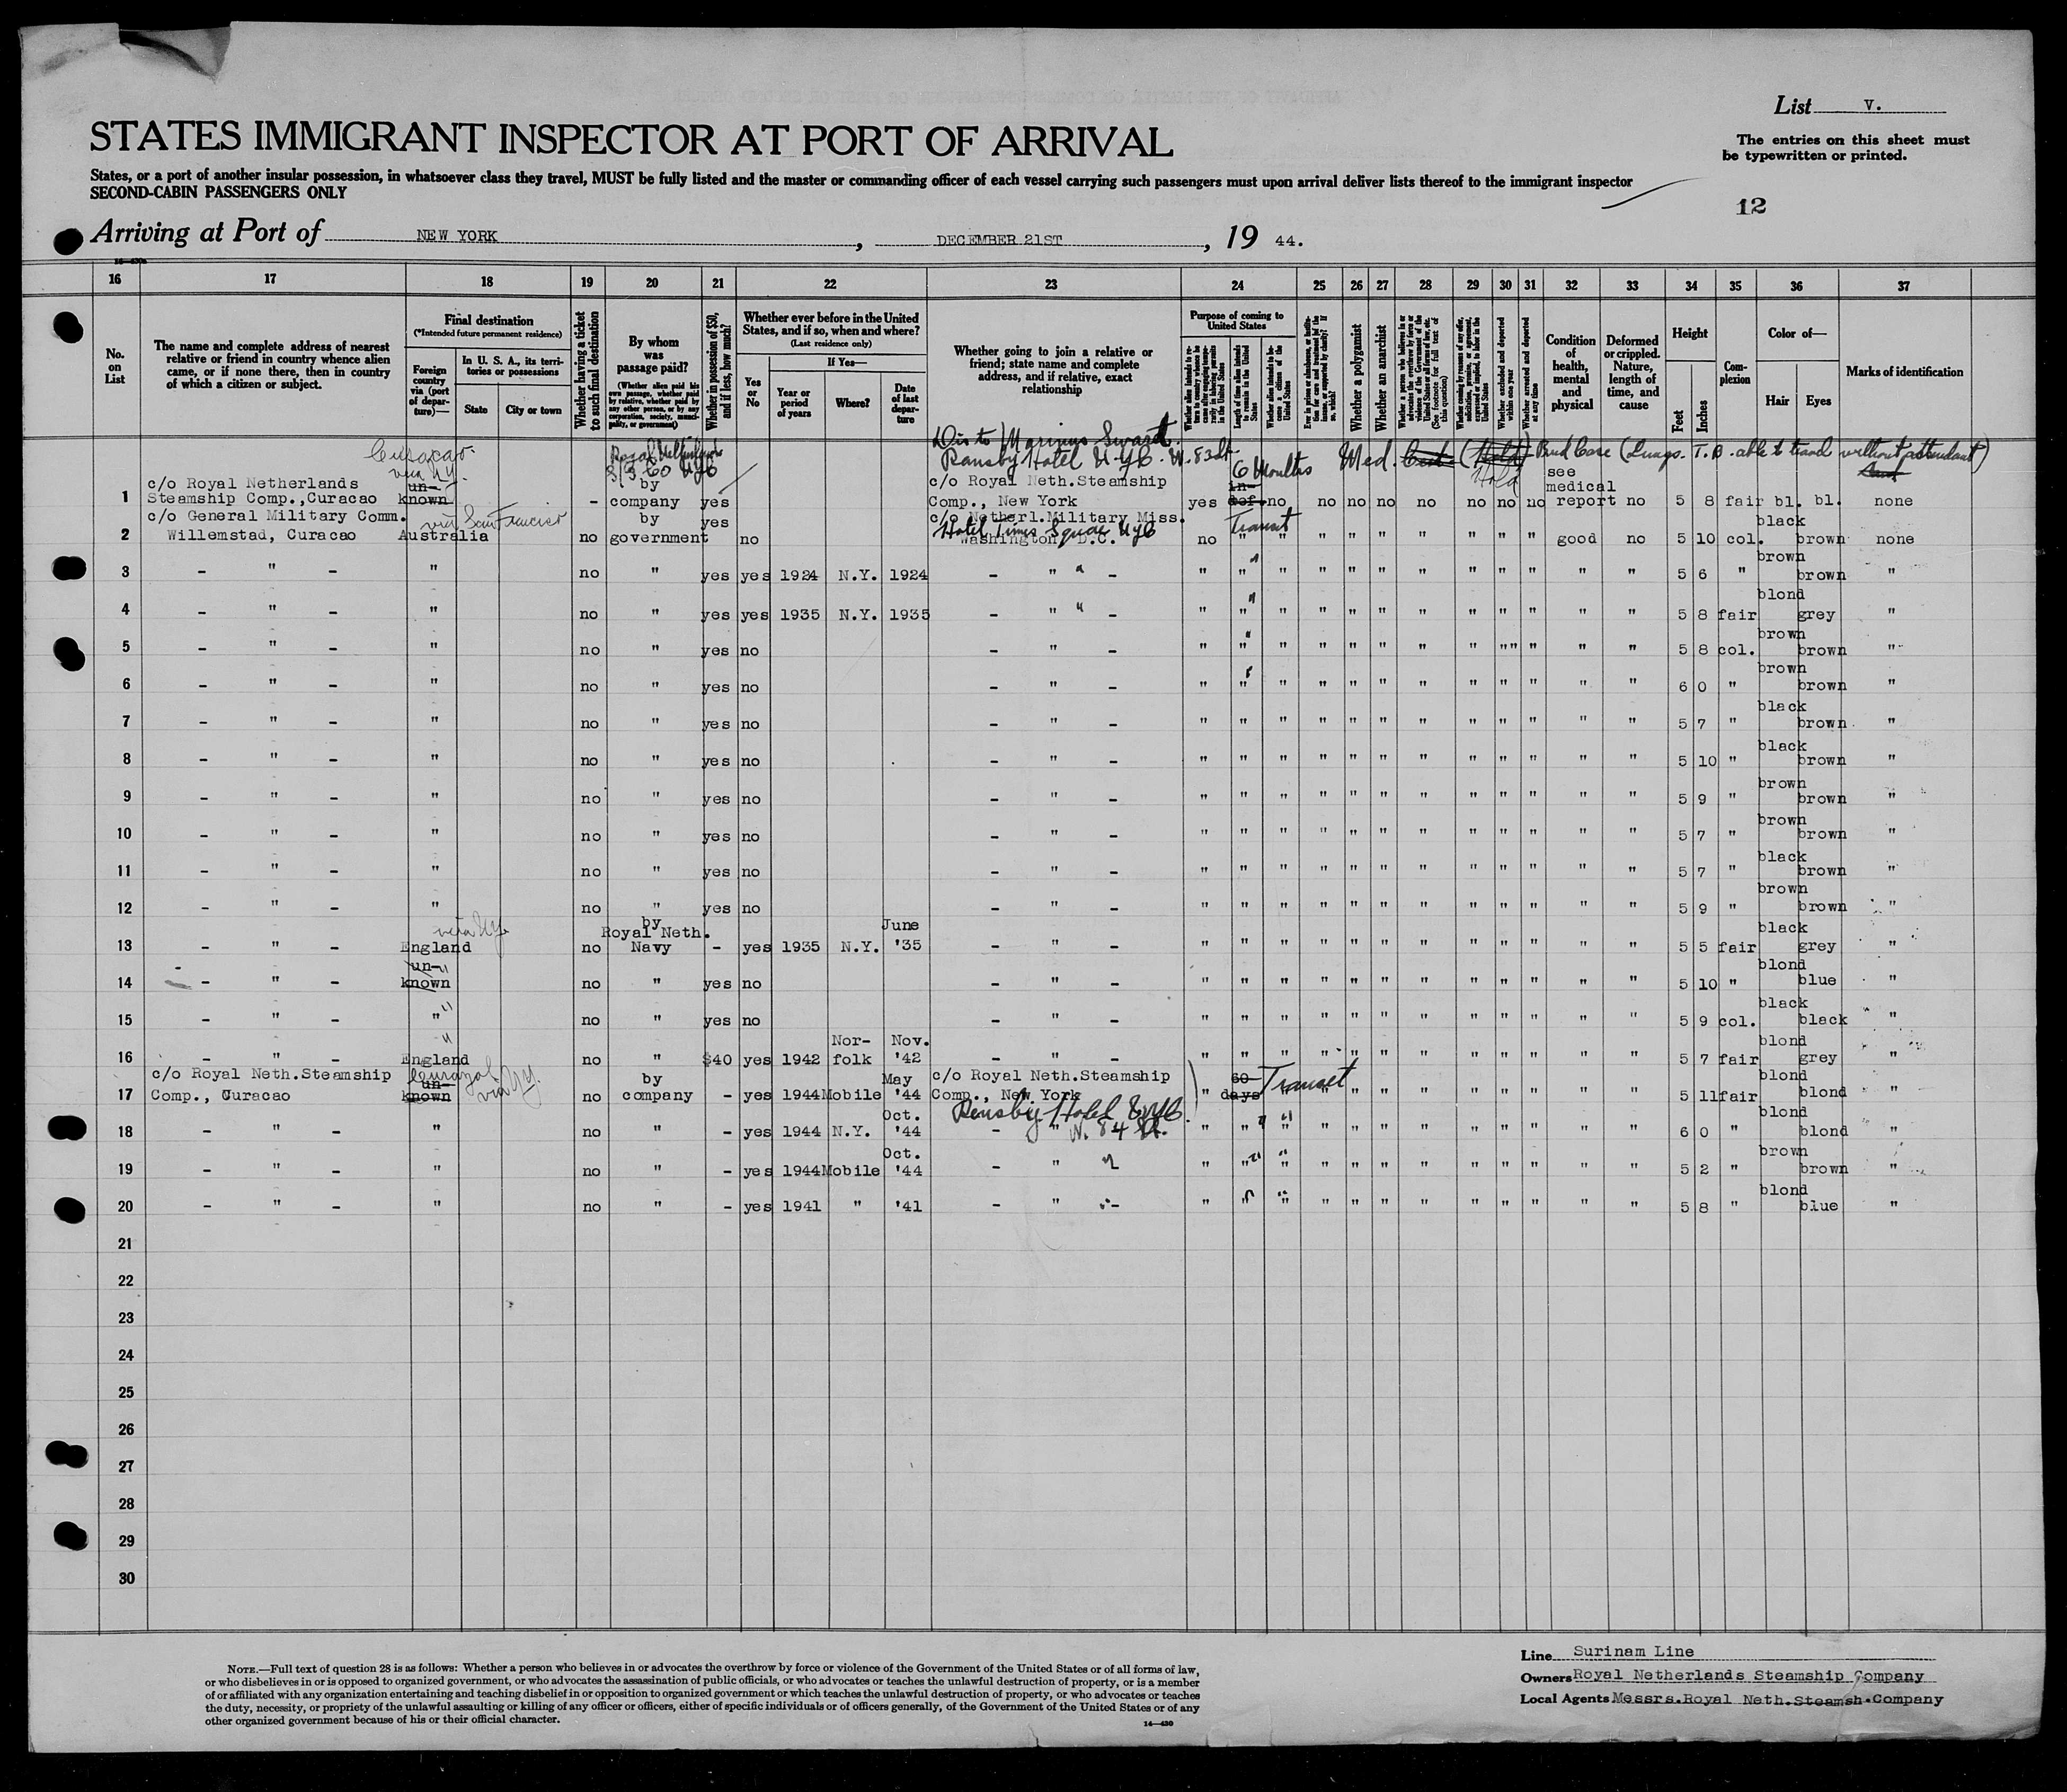 List V.
STATES IMMIGRANT INSPECTOR AT PORT OF ARRIVAL
The entries on this sheet must
be typewritten or printed.
States, or a port of another insular possession, in whatsoever class they travel, MUST be fully listed and the master or commanding officer of each vessel carrying such passengers must upon arrival deliver lists thereof to the immigrant inspector
SECOND-CABIN PASSENGERS ONLY
12
Arriving at Port of NEW YORK, DECEMBER 21ST, 19 44.
16 17 18 19 20 21 22 23 24 25 26 27 28 29 30 31 32 33 34 35 36 37
No. on List
The name and complete address of nearest relative or friend in country whence alien came, or if none there, then in country of which a citizen or subject.
Final destination
(*Intended future permanent residence)
Foreign country via (port of departure)—
In U. S. A., its territories or possessions
State
City or town
Whether having a ticket to such final destination
By whom was passage paid?
(Whether alien paid his own passage, whether paid by relative, whether paid by any other person, or by any corporation, society, municipality, or government)
Whether in possession of $50, and if less, how much?
Whether ever before in the United States, and if so, when and where?
(Last residence only)
Yes or No
If Yes—
Year or period of years
Where?
Date of last departure
Whether going to join a relative or friend; state name and complete address, and if relative, exact relationship
Purpose of coming to United States
Length of time alien intends to remain in the United States
Whether alien intends to become a citizen of the United States
Whether a polygamist
Whether an anarchist
Whether excluded and deported within one year
Whether arrested and deported at any time
Condition of health, mental and physical
Deformed or crippled. Nature, length of time, and cause
Height
Feet
Inches
Complexion
Color of—
Hair
Eyes
Marks of identification
Curacao via N.Y.
Dis to Marinus Swart.
Ransby Hotel N.Y.C. W. 83 St.
6 Months Med. Cert (Hold) Hold
(Lungs. T.B. able to travel without attendant)
1 c/o Royal Netherlands Steamship Comp.,Curacao un-known - by company yes c/o Royal Neth.Steamship Comp., New York yes in-def. no no no no no no no no see medical report no 5 8 fair bl. bl. none
2 c/o General Military Comm. Willemstad, Curacao via San Francisco Australia no by government yes no c/o Netherl.Military Miss. Washington D.C. Hotel Times Square NYC no Transit " " " " " " " " " good no 5 10 col. black brown none
3 - " - " no " yes yes 1924 N.Y. 1924 - " " - " " " " " " " " " " " " " 5 6 " brown brown "
4 - " - " no " yes yes 1935 N.Y. 1935 - " " - " " " " " " " " " " " " " 5 8 fair blond grey "
5 - " - " no " yes no - " - " " " " " " " " "" " " " 5 8 col. brown brown "
6 - " - " no " yes no - " - " " " " " " " " " " " " 6 0 " brown brown "
7 - " - " no " yes no - " - " " " " " " " " " " " " 5 7 " black brown "
8 - " - " no " yes no - " - " " " " " " " " " " " " 5 10 " black brown "
9 - " - " no " yes no - " - " " " " " " " " " " " " 5 9 " brown brown "
10 - " - " no " yes no - " - " " " " " " " " " " " " 5 7 " brown brown "
11 - " - " no " yes no - " - " " " " " " " " " " " " 5 7 " black brown "
12 - " - " no " yes no - " - " " " " " " " " " " " " 5 9 " brown brown "
13 - " - via NY England no by Royal Neth. Navy - yes 1935 N.Y. June '35 - " - " " " " " " " " " " " " 5 5 fair black grey "
14 - " - un-known " no " yes no - " - " " " " " " " " " " " " 5 10 " blond blue "
15 - " - " " no " yes no - " - " " " " " " " " " " " " 5 9 col. black black "
16 - " - " England no " $40 yes 1942 Nor-folk Nov. '42 - " - " " " " " " " " " " " " 5 7 fair blond grey "
17 c/o Royal Neth.Steamship Comp., Curacao un-known via NY. no by company - yes 1944 Mobile May '44 c/o Royal Neth.Steamship Comp., New York Ransby Hotel NYC W. 84 St. " 60 days Transit " " " " " " " " " " 5 11 fair blond blond "
18 - " - " no " - yes 1944 N.Y. Oct. '44 - " " " " " " " " " " " " " 6 0 " blond blond "
19 - " - " no " - yes 1944 Mobile Oct. '44 - " " " " " " " " " " " " " 5 2 " brown brown "
20 - " - " no " - yes 1941 " '41 - " - " " " " " " " " " " " " 5 8 " blond blue "
21
22
23
24
25
26
27
28
29
30
NOTE.—Full text of question 28 is as follows: Whether a person who believes in or advocates the overthrow by force or violence of the Government of the United States or of all forms of law,
or who disbelieves in or is opposed to organized government, or who advocates the assassination of public officials, or who advocates or teaches the unlawful destruction of property, or is a member
of or affiliated with any organization entertaining and teaching disbelief in or opposition to organized government or which teaches the unlawful destruction of property, or who advocates or teaches
the duty, necessity, or propriety of the unlawful assaulting or killing of any officer or officers, either of specific individuals or of officers generally, of the Government of the United States or of any
other organized government because of his or their official character.
14—430
Line Surinam Line
Owners Royal Netherlands Steamship Company
Local Agents Messrs.Royal Neth.Steamsh.Company